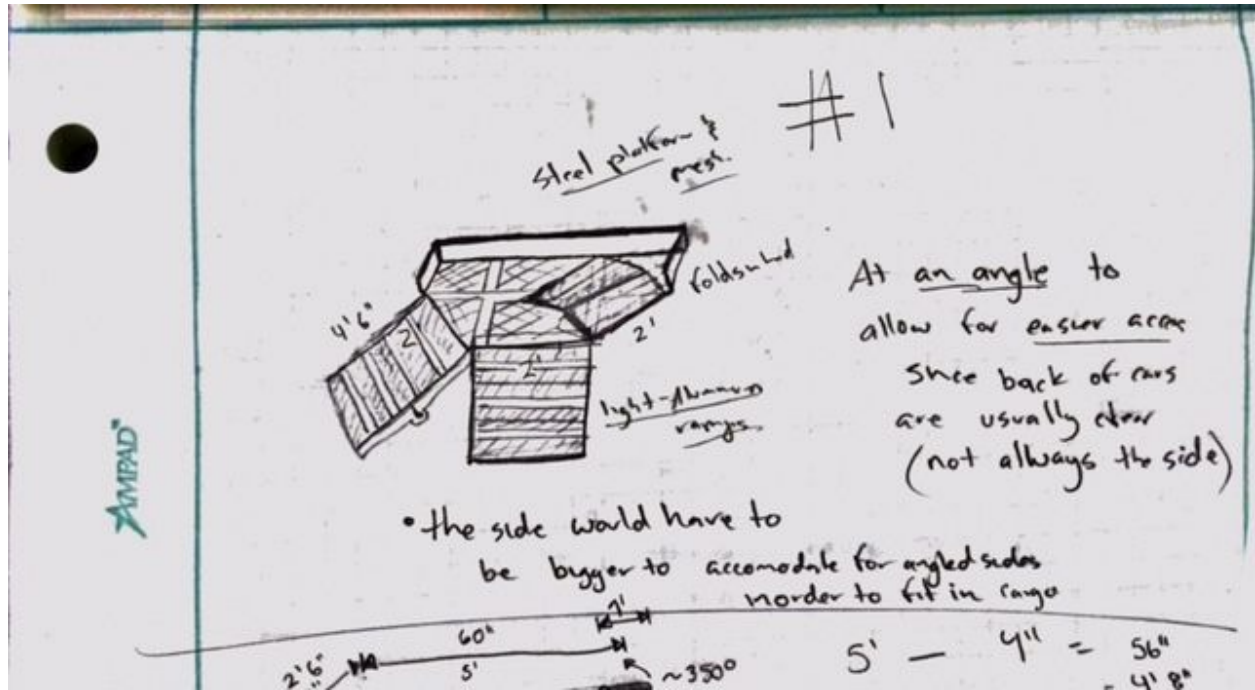 #1
Steel platform &
mesh.
folds inward
4'6"
2'
2'
2'
light-Aluminum
ramps
At an angle to
allow for easier access
since back of cars
are usually clear
(not always the side)
AMPAD
• the side would have to
be bigger to accomodate for angled sides
inorder to fit in cargo
60"
5'
2'6"
~350°
5' - 4" = 56"
= 4'8"